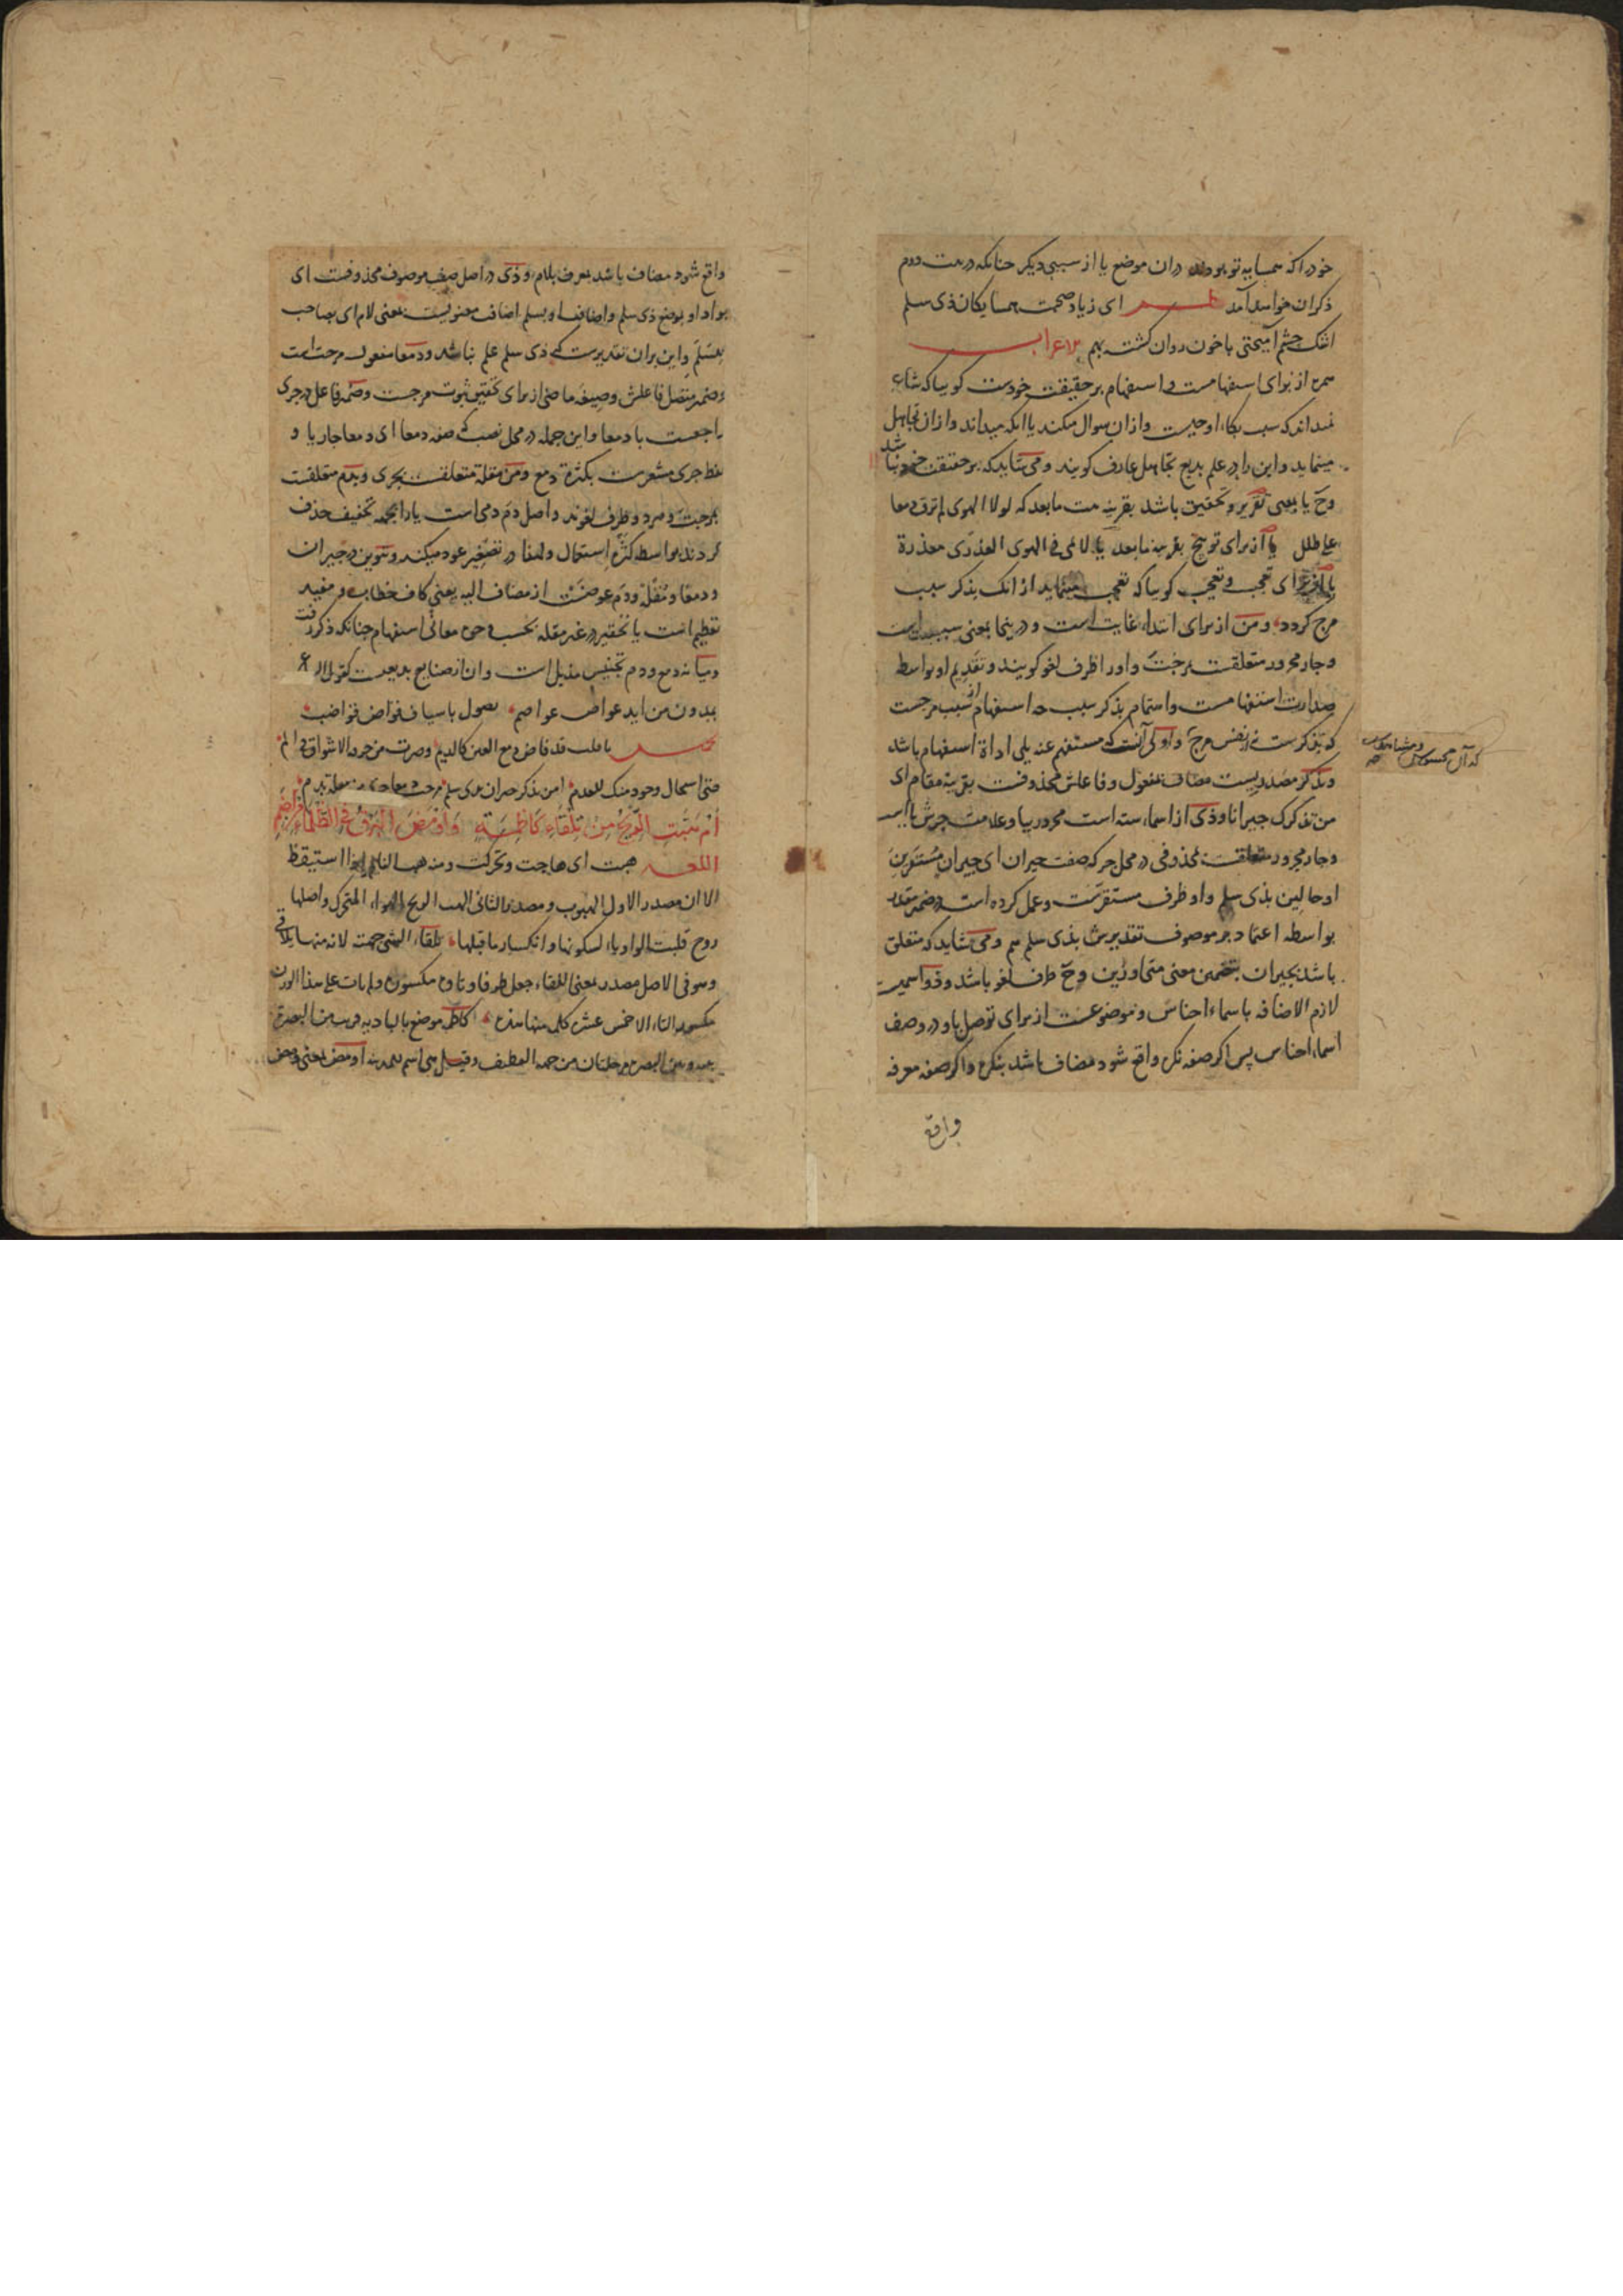 خود را که همسایه تو بودند دران موضع یا از سببی دیکر چنانکه در بیت دوم
ذکر ان خواهد آمد ای ز یاد صحبت همسایکان ذی سلم
اشک چشم آمیختی با خون روان کشته بهم الاعراب
همزه از برای استفهامست و استفهام بر حقیقت خودست کوییا که شاعر
نمیداند که سبب بکاء او چیست و از ان سوال میکند یا انکه میداند و از ان تجاهل
مینماید و این را در علم بدیع تجاهل عارف کویند و می شاید که بر حقیقت خود نباشد
وح یا بمعنی تقریر و تحقیق باشد بقرینه بیت مابعد که لولا الهوی لم ترق دمعا
علی طلل یا از برای توبیخ بقرینه مابعد یا لائمی فی الهوی العذری معذرة
یا از برای تعجب و تعجیب کوییا که تعجب مینماید از انک بذکر سبب
مزج کردد و من از برای ابتداء غایت است و در ینجا بمعنی سبب است
و جار و مجرور متعلقست بمزجت و او را ظرف لغو کویند و تقدیم او بواسطه
صدارت استفهامست و اهتمام بذکر سبب چه استفهام از سبب مزجست
که تذکرست نه از نفس مزج و اولی آنست که مستفهم عنه یلی اداة استفهام باشد
و تذکر مصدریست مضاف بمفعول و فاعلش محذوفست بقرینه مقام ای
من تذکرک جیرانا و ذی از اسماء سته است مجرور بیا و علامت جرش یا است
و جار و مجرور متعلقست بمحذوفی در محل جر که صفت جیران ای جیران مستقرین
او حالین بذی سلم و او ظرف مستقرست و عمل کرده است در ضمیر مقدر
بواسطه اعتماد بر موصوف تقدیرش بذی سلم هم و می شاید که متعلق
باشد بجیران بتضمین معنی متجاورین وح ظرف لغو باشد و ذو اسمیست
لازم الاضافه باسماء اجناس و موضوعست از برای توصل باو در وصف
اسماء اجناس پس اکر صفه نکره واقع شود مضاف باشد بنکره و اکر صفه معرفه
واقع
واقع شود مضاف باشد بمعرف بلام و ذی در اصل صفت موصوف محذوفست ای
بواد او بموضع ذی سلم و اضافت او بسلم اضافت معنویست بمعنی لام ای بصاحب
بسلم و این بران تقدیرست که ذی سلم علم نباشد و دمعا مفعول مزجت است
و ضمیر متصل فاعلش و صیغه ماضی از برای تحقیق ثبوت مزجت و ضمیر فاعل در جری
راجعست با دمعا و این جمله در محل نصب که صفه دمعا ای دمعا جاریا و
لفظ جری مشعرست بکثرة دمع و من مقلة متعلقست بجری و بدم متعلقست
بمزجت و هر دو ظرف لغوند و اصل دم دمی است یا را بجهة تخفیف حذف
کردند بواسطه کثرة استعمال و لهذا در تصغیر عود میکند و تنوین در جیران
و دمعا و مقلة و دم عوضست از مضاف الیه یعنی کاف خطاب و مفید
تعظیم است یا تحقیر در غیر مقله بحسب وجوه معانی استفهام چنانکه ذکر رفت
و میانه دمع و دم تجنیس مذیل است و ان از صنایع بدیعست کقوله
یمدون من اید عواص عواصم تصول باسیاف قواض قواضب
یا قلب قد فاض دمع العین کالدیم و صرت من حرقة الاشواق فی الم
حتی استحال وجود منک للعدم امن تذکر جیران بذی سلم مزجت دمعا جری من مقلة بدم
أم هبت الريح من تلقاء كاظمة وأومض البرق في الظلماء من إضم
اللغه هبت ای هاجت و تحرکت و منه هب النائم اذا استیقظ
الا ان مصدر الاول الهبوب و مصدر الثانی الهب الریح الهواء المتحرک و اصلها
روح قلبت الواو یاء لسکونها و انکسار ما قبلها تلقاء الشی جهته لانه منها یلاقی
و هو فی الاصل مصدر بمعنی اللقاء جعل ظرفا و تاوه مکسورة و لم یات علی هذا الوزن
مکسور التاء الا خمس عشرة کلمة منها هذه کاظمة موضع بالبادیة قریب من البصرة
بینه و بین البصرة مرحلتان من جهة القطیف و قیل هی اسم للمدینه اومض بمعنی ومض